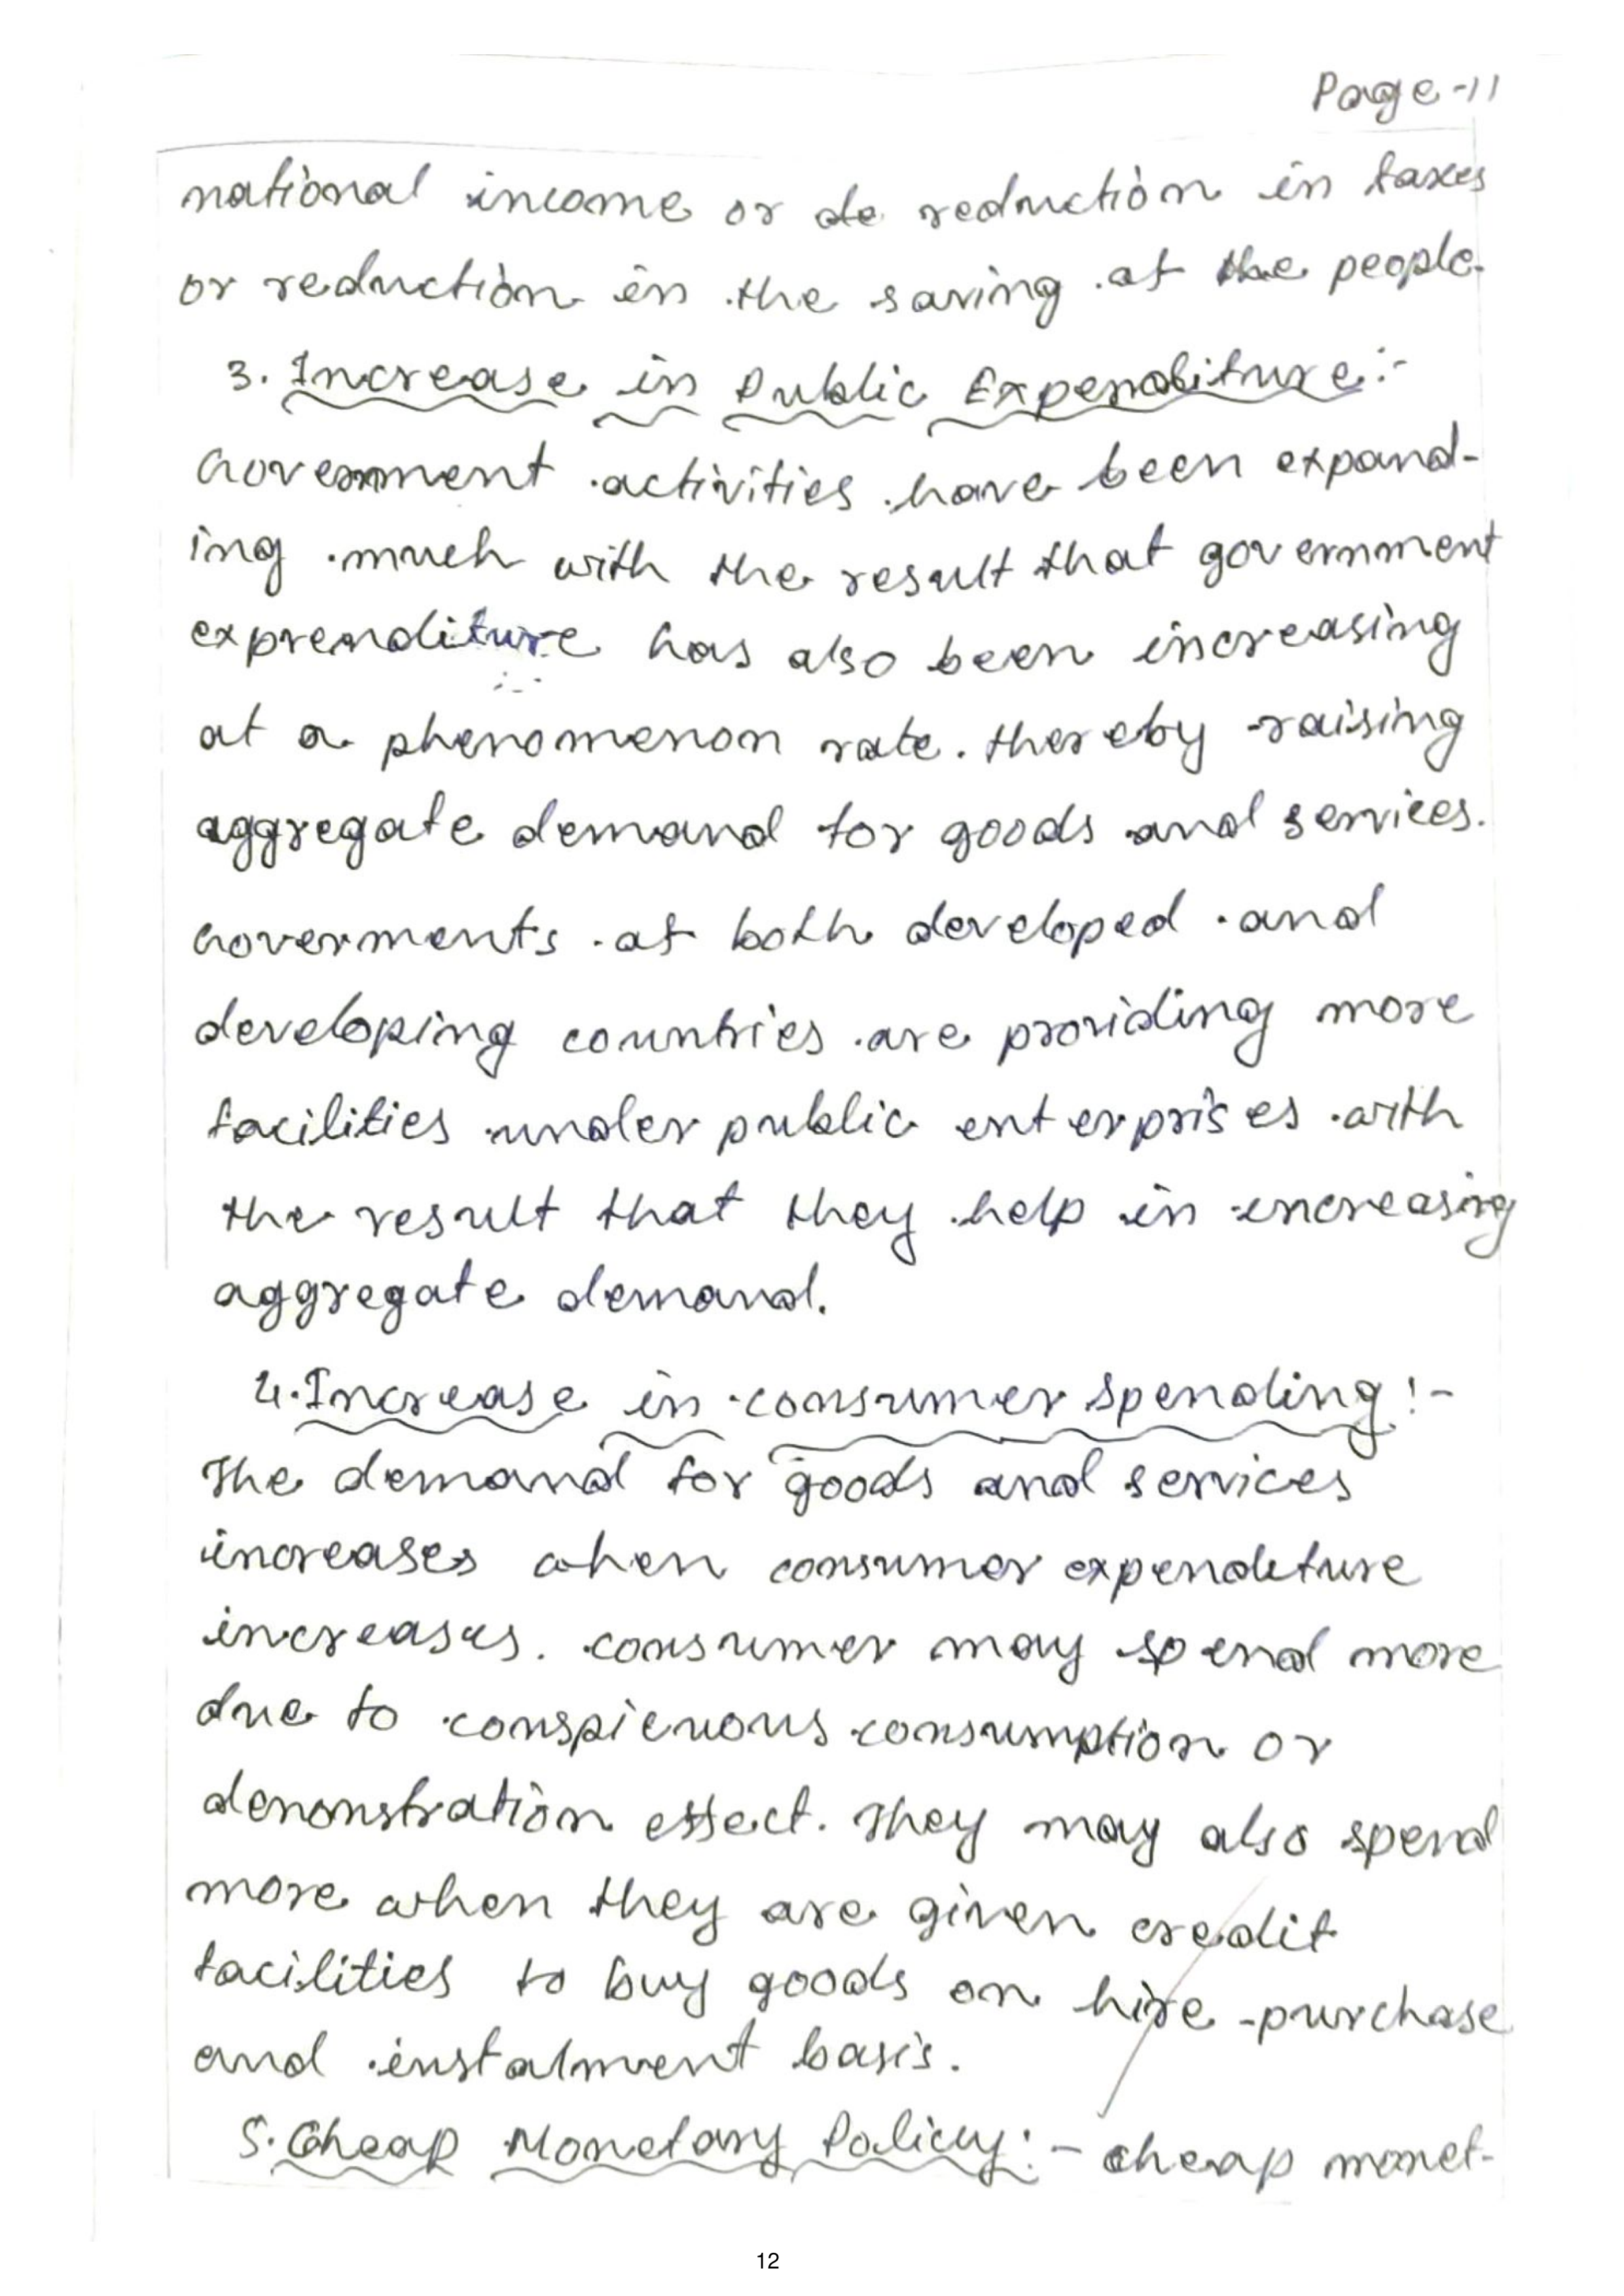 Page-11
national income or de reduction in taxes
or reduction in the saving of the people.
3. Increase in Public Expenditure:-
Government activities have been expand-
ing much with the result that government
exprenditure has also been increasing
at a phenomenon rate. thereby raising
aggregate demand for goods and services.
Goverments of both developed and
developing countries are providing more
facilities under public enterprises with
the result that they help in increasing
aggregate demand.
4. Increase in consumer spending:-
The demand for goods and services
increases when consumer expenditure
increases. consumer may spend more
due to conspicuous consumption or
demonstration effect. They may also spend
more when they are given credit
facilities to buy goods on hire-purchase
and instalment basis.
5. Cheap Monetary Policy:- cheap monet-
12